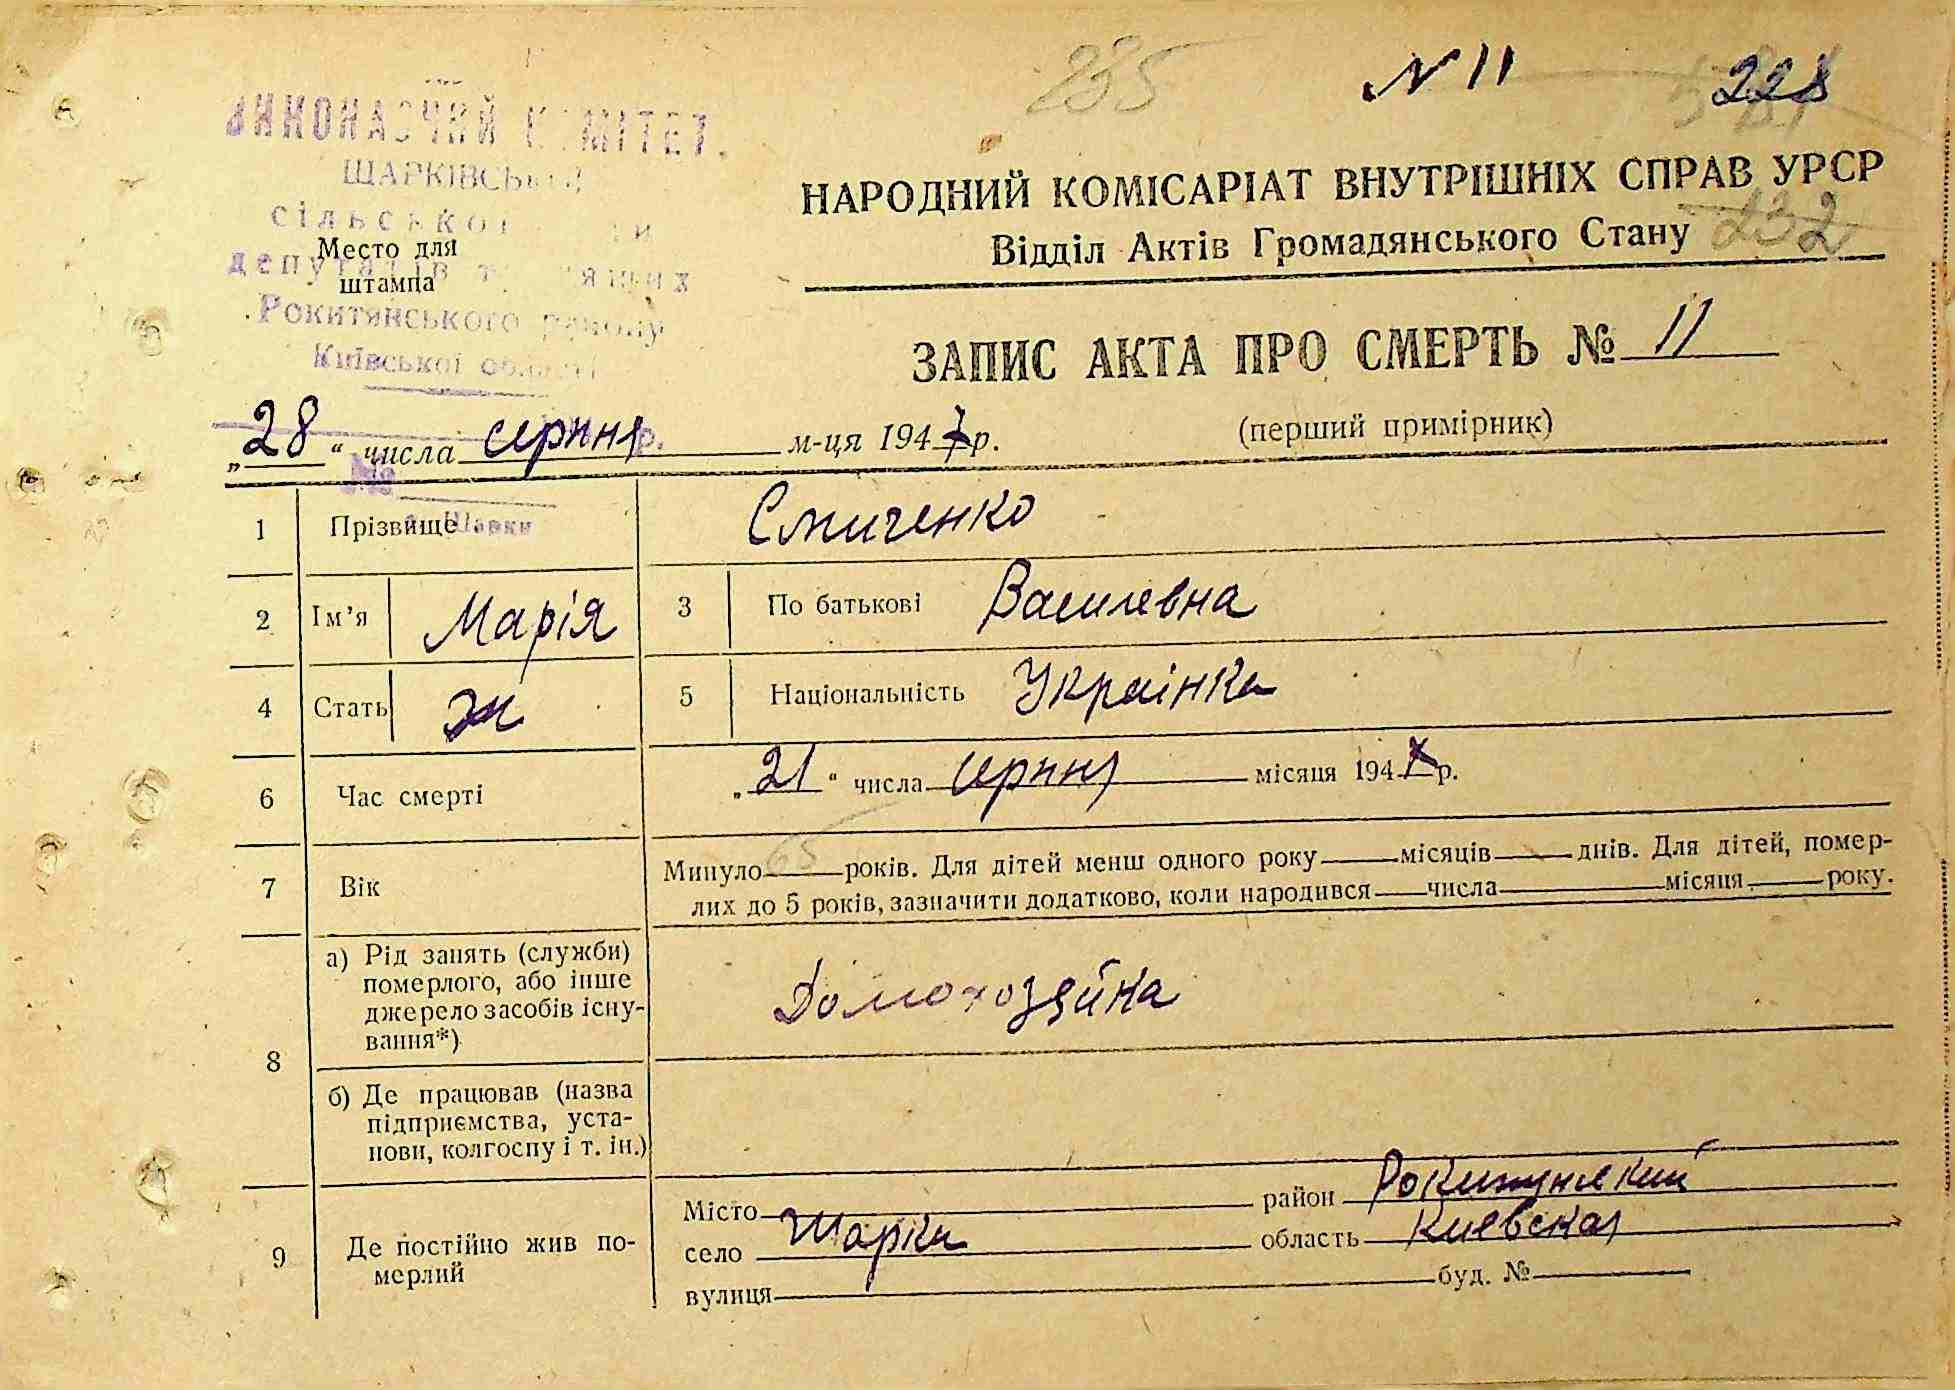 235 N 11 228
ВИКОНАВЧИЙ КОМІТЕТ
ШАРКІВСЬКОЇ
сільської
депутатів трудящих
Рокитянського району
Київської області
Место для
штампа
НАРОДНИЙ КОМІСАРІАТ ВНУТРІШНІХ СПРАВ УРСР
Відділ Актів Громадянського Стану 232
ЗАПИС АКТА ПРО СМЕРТЬ № 11
(перший примірник)
„28“ числа серпня м-ця 1947 р.
№
Шарки
1 Прізвище Смиченко
2 Ім’я Марія 3 По батькові Василевна
4 Стать ж 5 Національність Українка
6 Час смерті „21“ числа серпня місяця 1947 р.
7 Вік Минуло 65 років. Для дітей менш одного року місяців днів. Для дітей, помер-
лих до 5 років, зазначити додатково, коли народився числа місяця року.
8 а) Рід занять (служби)
померлого, або інше
джерело засобів існу-
вання*)
Домохозяйка
б) Де працював (назва
підприємства, уста-
нови, колгоспу і т. ін.)
9 Де постійно жив по-
мерлий
Місто район Рокитянский
село Шарки область Киевская
вулиця буд. №